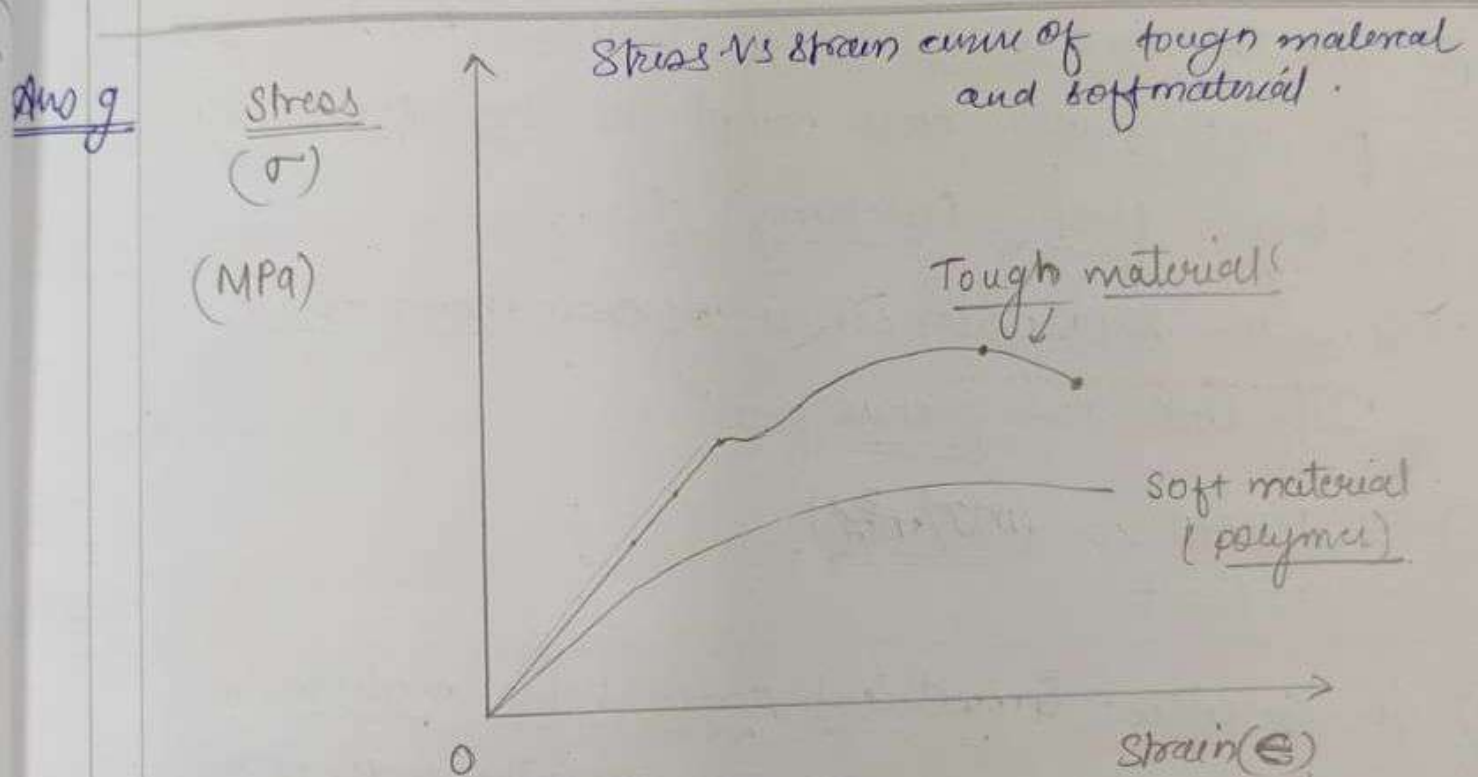 Stress Vs strain curve of tough material
and soft material.
Ans 9
Stress
(σ)
(MPa)
Tough material
Soft material
(polymer)
O
Strain (e)